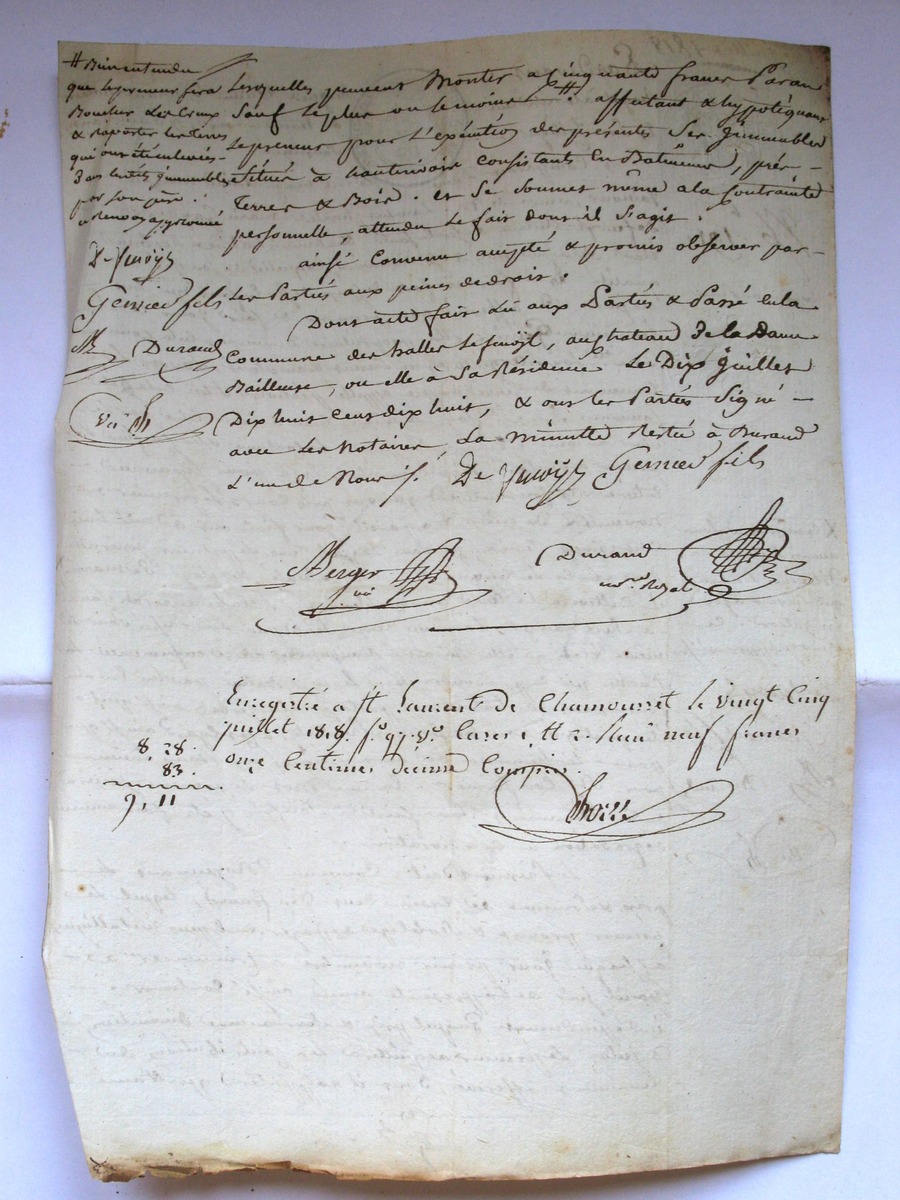 # Bien entendu
que le preneur fera
Boucher les creux
& raporter les terres
qui ont été enlevées
dans lesdits immeubles
par son père.
renvoy approuvé
De Jussieu
Gervier fils
M Durand
Vu
Lesquelles peuvent Monter a Cinquante francs Par an
Sauf le plus ou le moins # affectant & hypotéquant
Le preneur pour l'exécution des présentes Ses Immeubles
Situés à hauterivoire Consistants En Batiments, prés
Terres & Bois. et Se Soumet même a la Contrainte
personnelle attendu Le fait dont il S'agit.
ainsi Convenu accepté & promis observer par
Les Parties aux peines de droit.
Dont acte fait Lu aux Parties & Passé en la
Commune des halles Le , au chateau De la Dame
Bailleuse, ou elle à Sa Résidence Le Dix Juillet
Dix huit Cent dix huit, & ont les Parties Signé
avec Les Notaires, La Minutte Restée à Durand
L'un de Nous.
Gervier fils
Berger
Durand
no.re Royal
Enregistré a St Laurent de Chamousset le vingt Cinq
juillet 1818. f.o 97 v.o Cases 1 et 2. Reçu neuf francs
onze Centimes décime Compris.
8. 28.
83.
9, 11